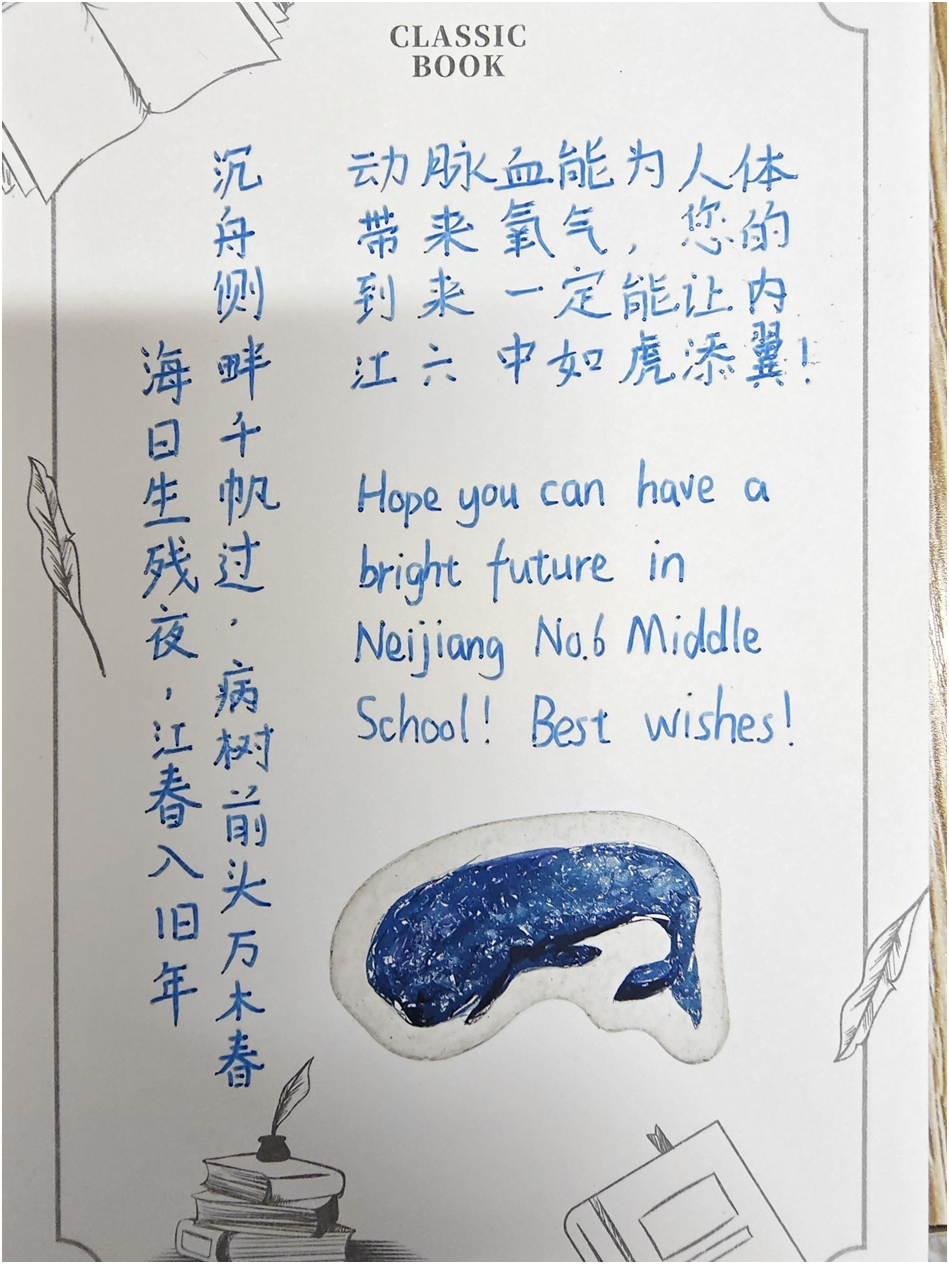 CLASSIC
BOOK
动脉血能为人体
带来氧气，您的
到来一定能让内
江六中如虎添翼！
Hope you can have a
bright future in
Neijiang No.6 Middle
School! Best wishes!
沉舟侧畔千帆过，病树前头万木春
海日生残夜，江春入旧年